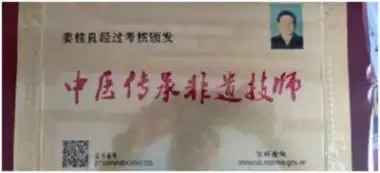 姜桂良经过考核颁发
中医传承非遗技师